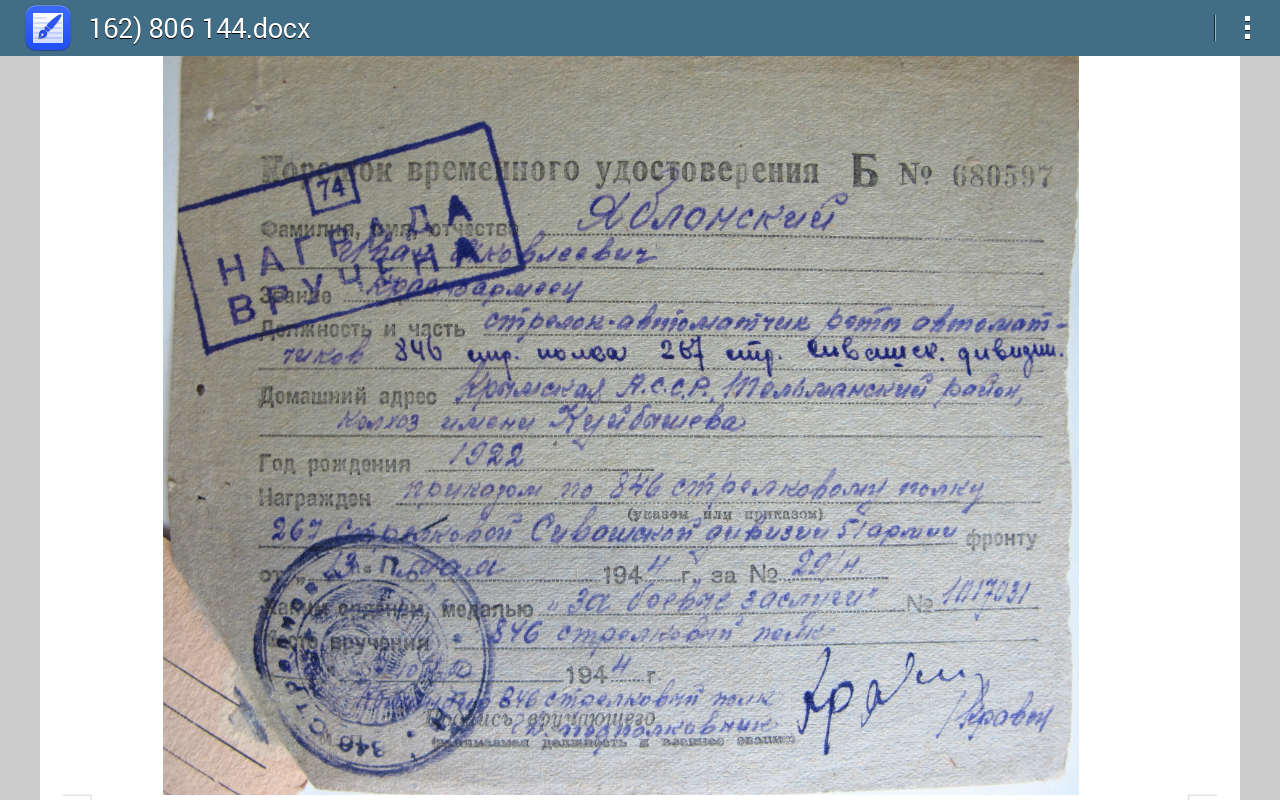 162) 806 144.docx
Корешок временного удостоверения Б № 680597
74
НАГРАДА
ВРУЧЕНА
Фамилия, имя, отчество Яблонский
Иван Яковлевич
Звание красноармеец
Должность и часть стрелок-автоматчик роты автомат-
чиков 846 стр. полка 267 стр. Сивашск. дивизии.
Домашний адрес Крымская А.С.С.Р., Тельманский район,
колхоз имени Куйбышева
Год рождения 1922
Награжден приказом по 846 стрелковому полку
(указом или приказом)
267 Стрелковой Сивашской дивизии 51 армии фронту
от " мая 1944 г., за № 29/н.
Каким орденом, медалью "За боевые заслуги" № 1017031
Место вручения 846 стрелковый полк
1944 г.
846 стрелковый полк
Подпись вручающего
подполковник
(занимаемая должность и военное звание)
/Кравец